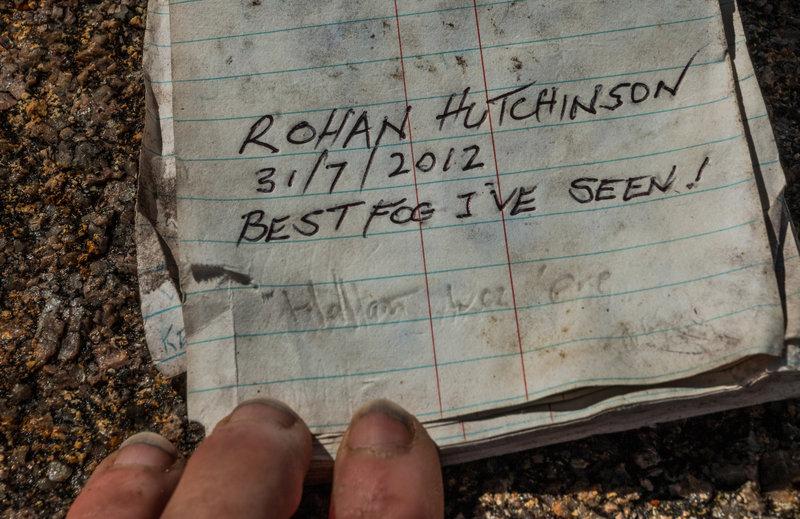 ROHAN HUTCHINSON
31/7/2012
BEST FOG I'VE SEEN!
wez 'ere